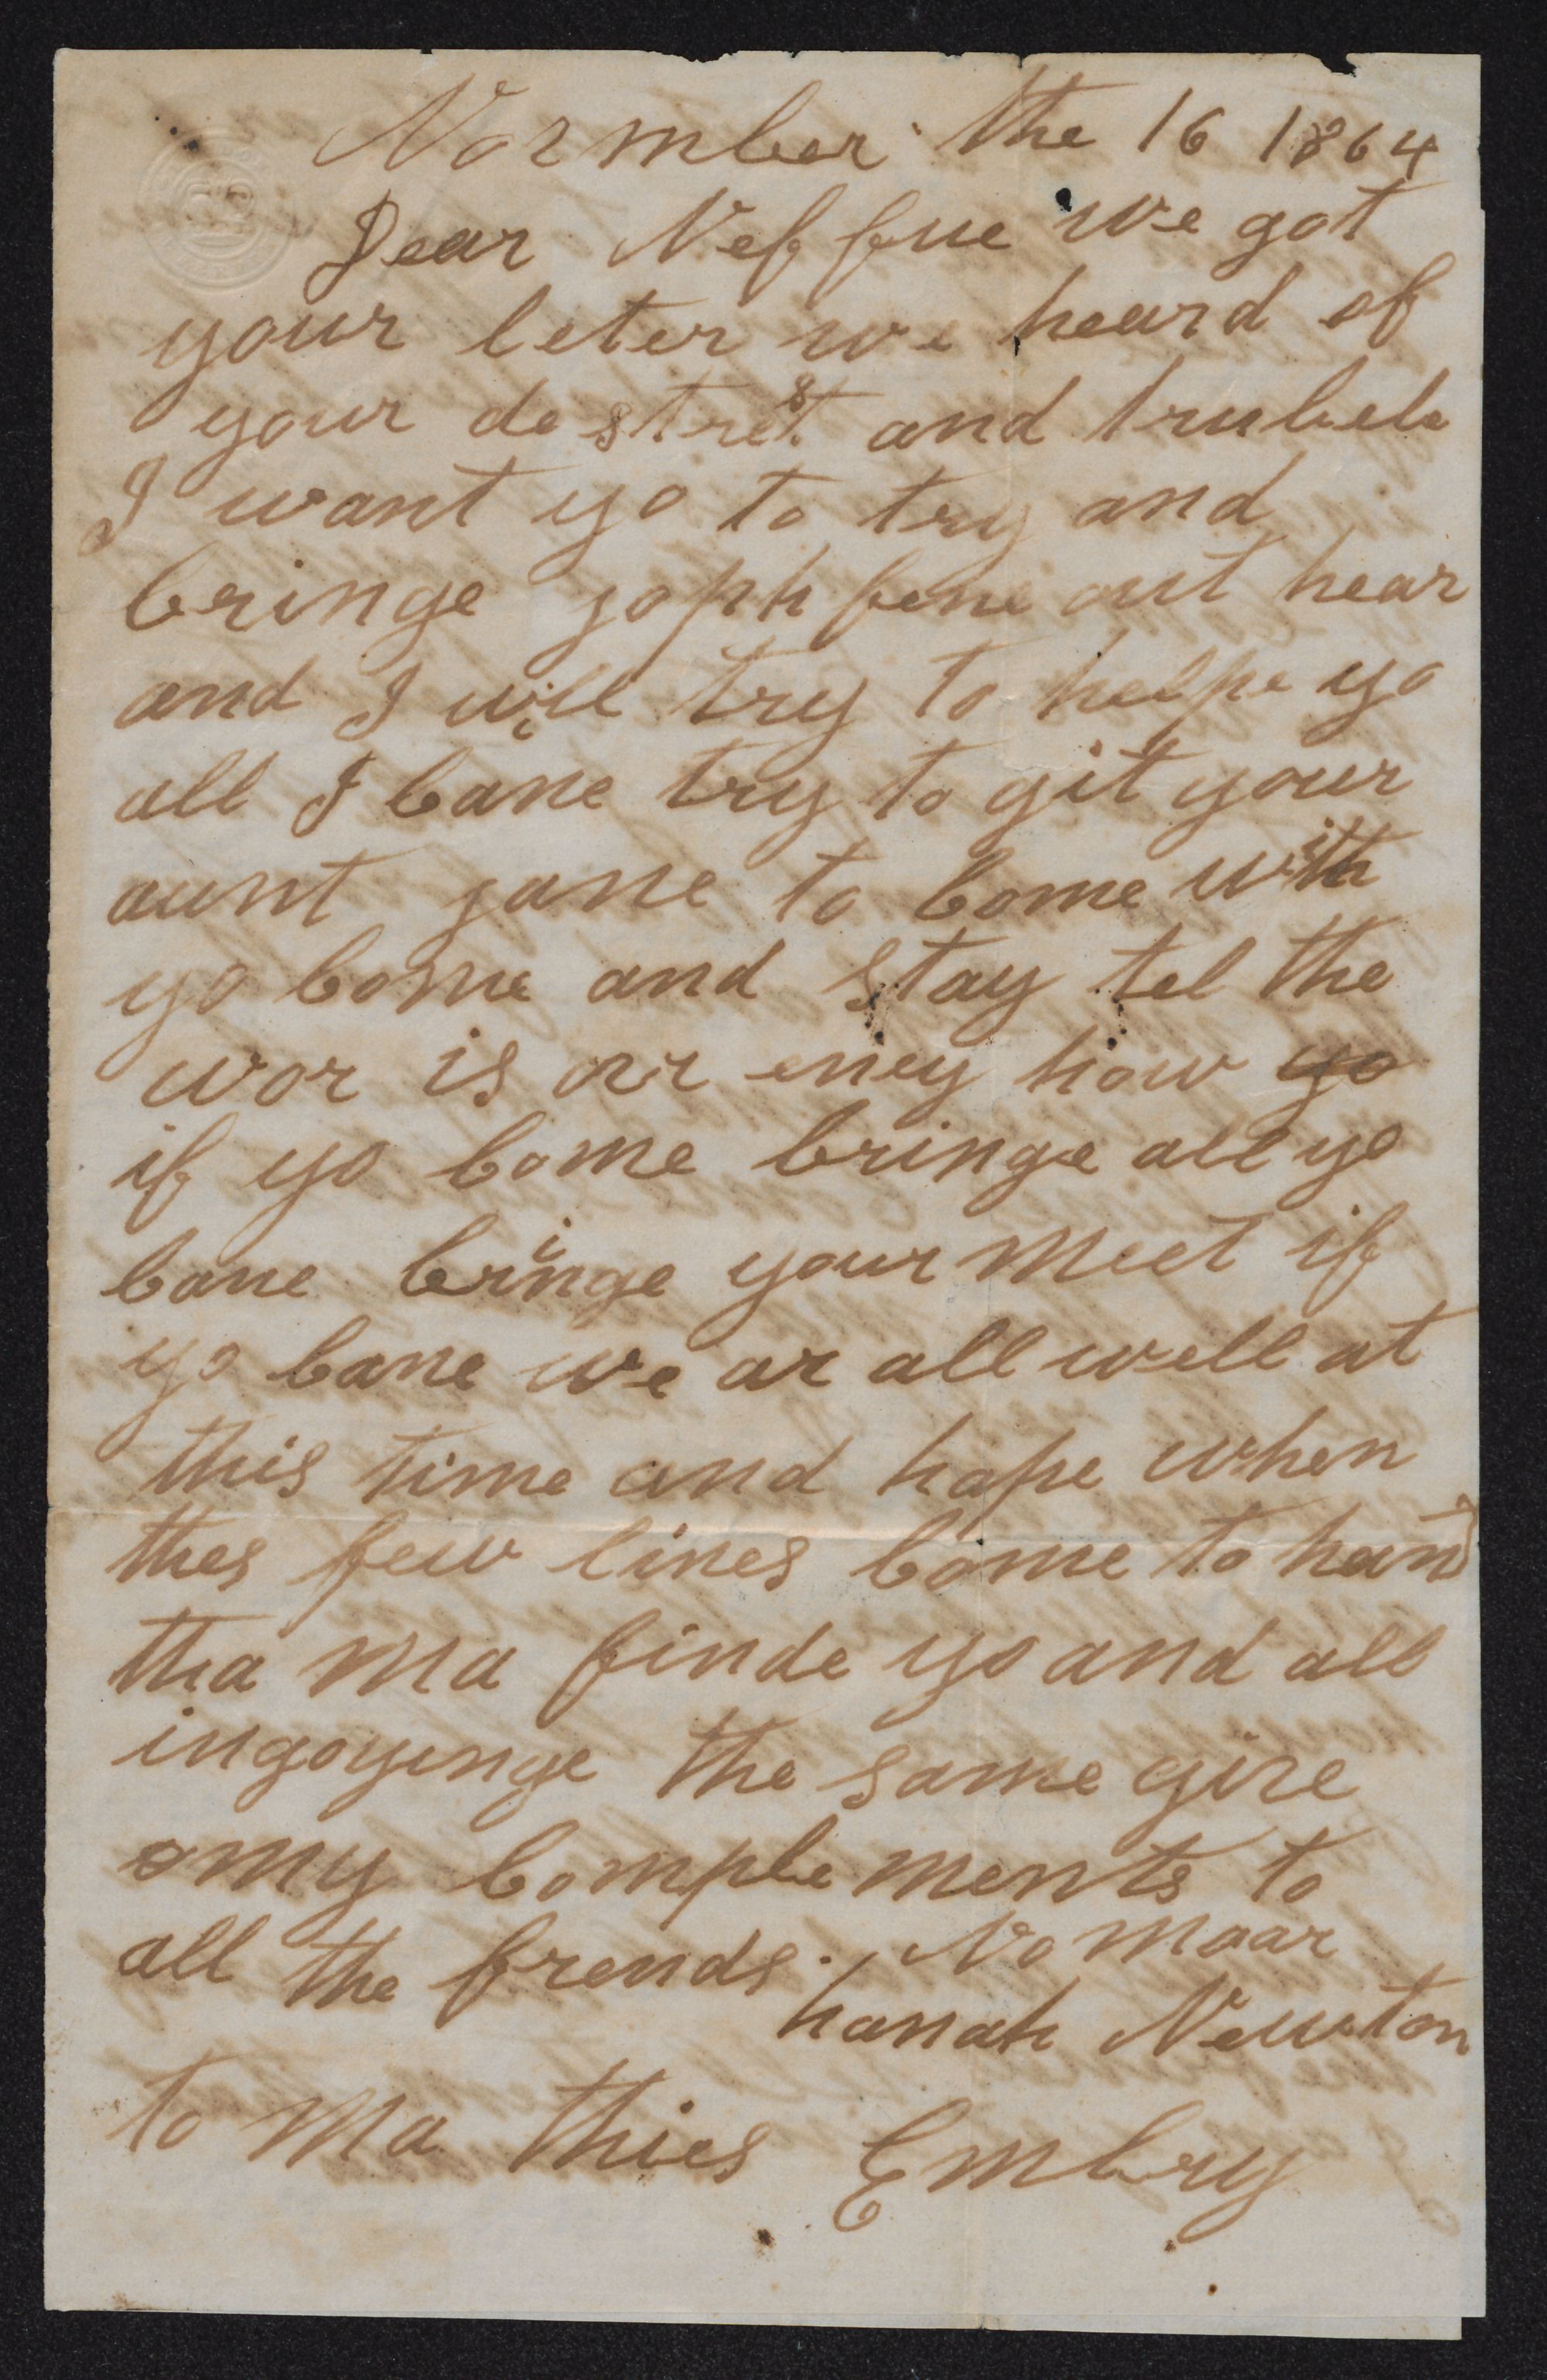 Novmber the 16 1864
Dear Neffue we got
your leter we heard of
your destrest and trubele
I want yo to try and
bringe jophfene out hear
and I will try to helpe yo
all I cane try to git your
aunt jane to come with
yo come and stay tel the
wor is ovr eney how yo
if yo come bringe all yo
cane bringe your meet if
yo cane we ar all well at
this time and hope when
thes few lines come to hand
tha ma finde yo and all
ingoyenge the same give
my complements to
all the frends. No moar
hanah Newton
to Mathies Embry